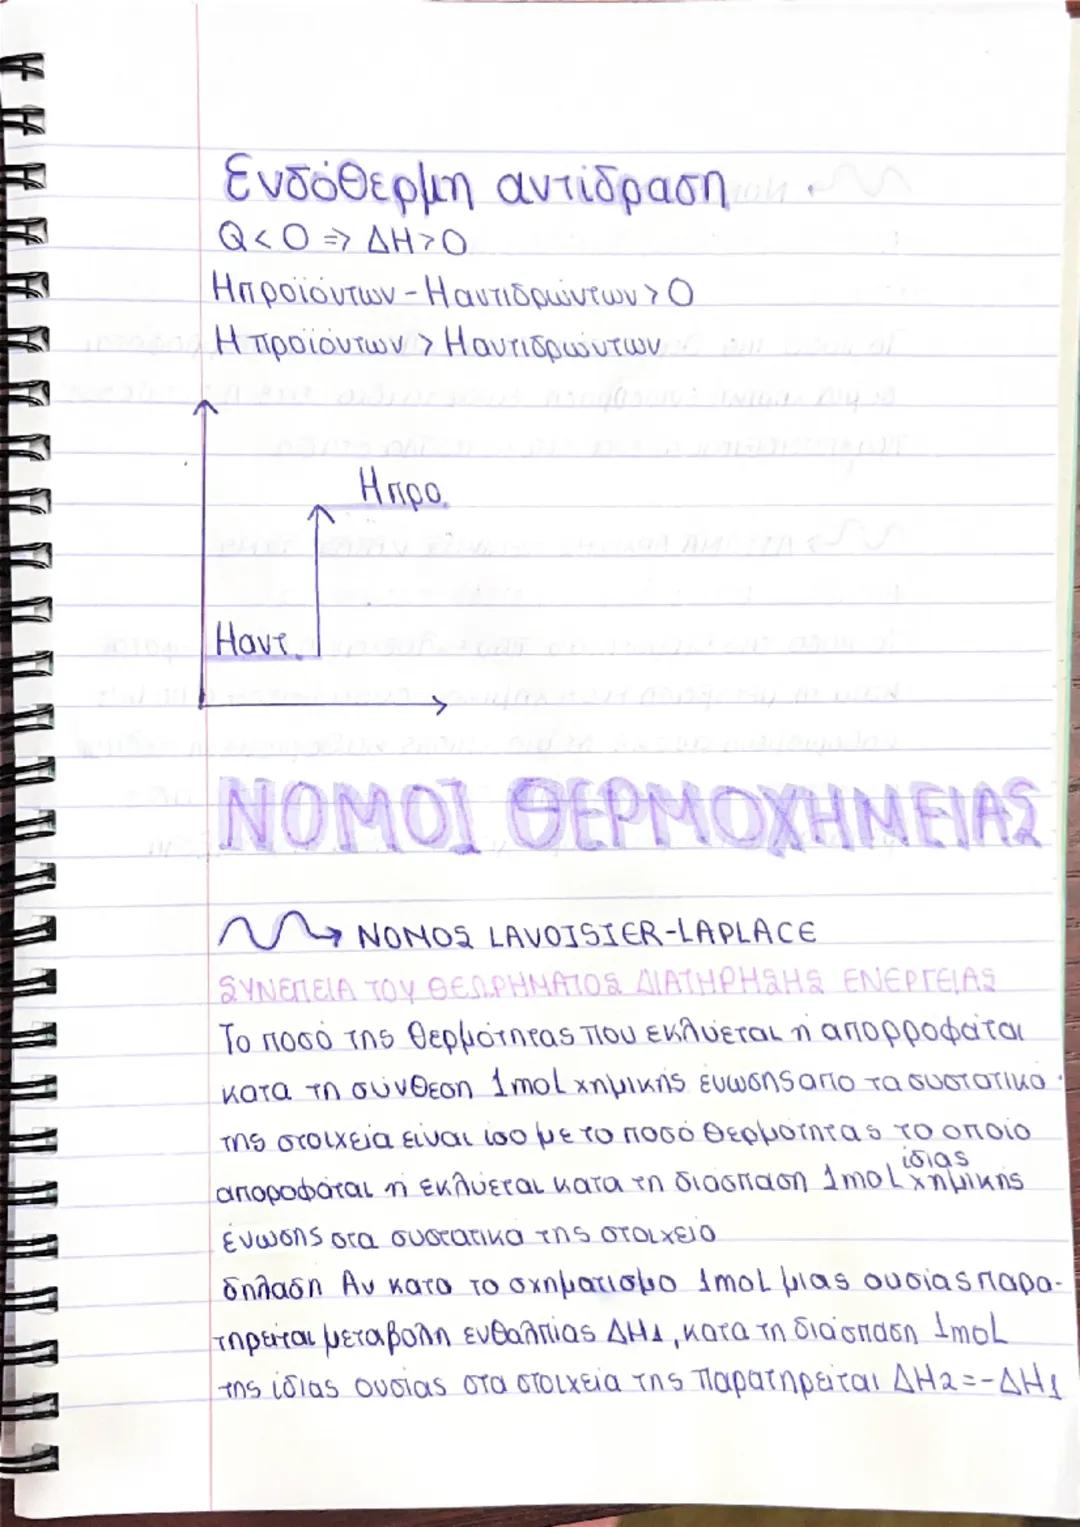 Ενδόθερμη αντίδραση
Q<0 => ΔΗ>0
Ηπροϊόντων - Ηαντιδρώντων > 0
Ηπροϊόντων > Ηαντιδρώντων
Ηπρο.
Ηαντ.
ΝΟΜΟΙ ΘΕΡΜΟΧΗΜΕΙΑΣ
ΝΟΜΟΣ LAVOISIER-LAPLACE
ΣΥΝΕΠΕΙΑ ΤΟΥ ΘΕΩΡΗΜΑΤΟΣ ΔΙΑΤΗΡΗΣΗΣ ΕΝΕΡΓΕΙΑΣ
Το ποσό της θερμότητας που εκλύεται ή απορροφάται
κατα τη σύνθεση 1mol χημικής ένωσης απο τα συστατικά
της στοιχεία είναι ίσο με το ποσό θερμότητας το οποίο
αποροφάται ή εκλύεται κατα τη διάσπαση 1mol ίδιας χημικής
ένωσης στα συστατικά της στοιχεία
δηλαδή Αν κατα το σχηματισμό 1mol μιας ουσίας παρα-
τηρείται μεταβολή ενθαλπίας ΔΗ1, κατα τη διάσπαση 1mol
της ίδιας ουσίας στα στοιχεία της παρατηρείται ΔΗ2=-ΔΗ1